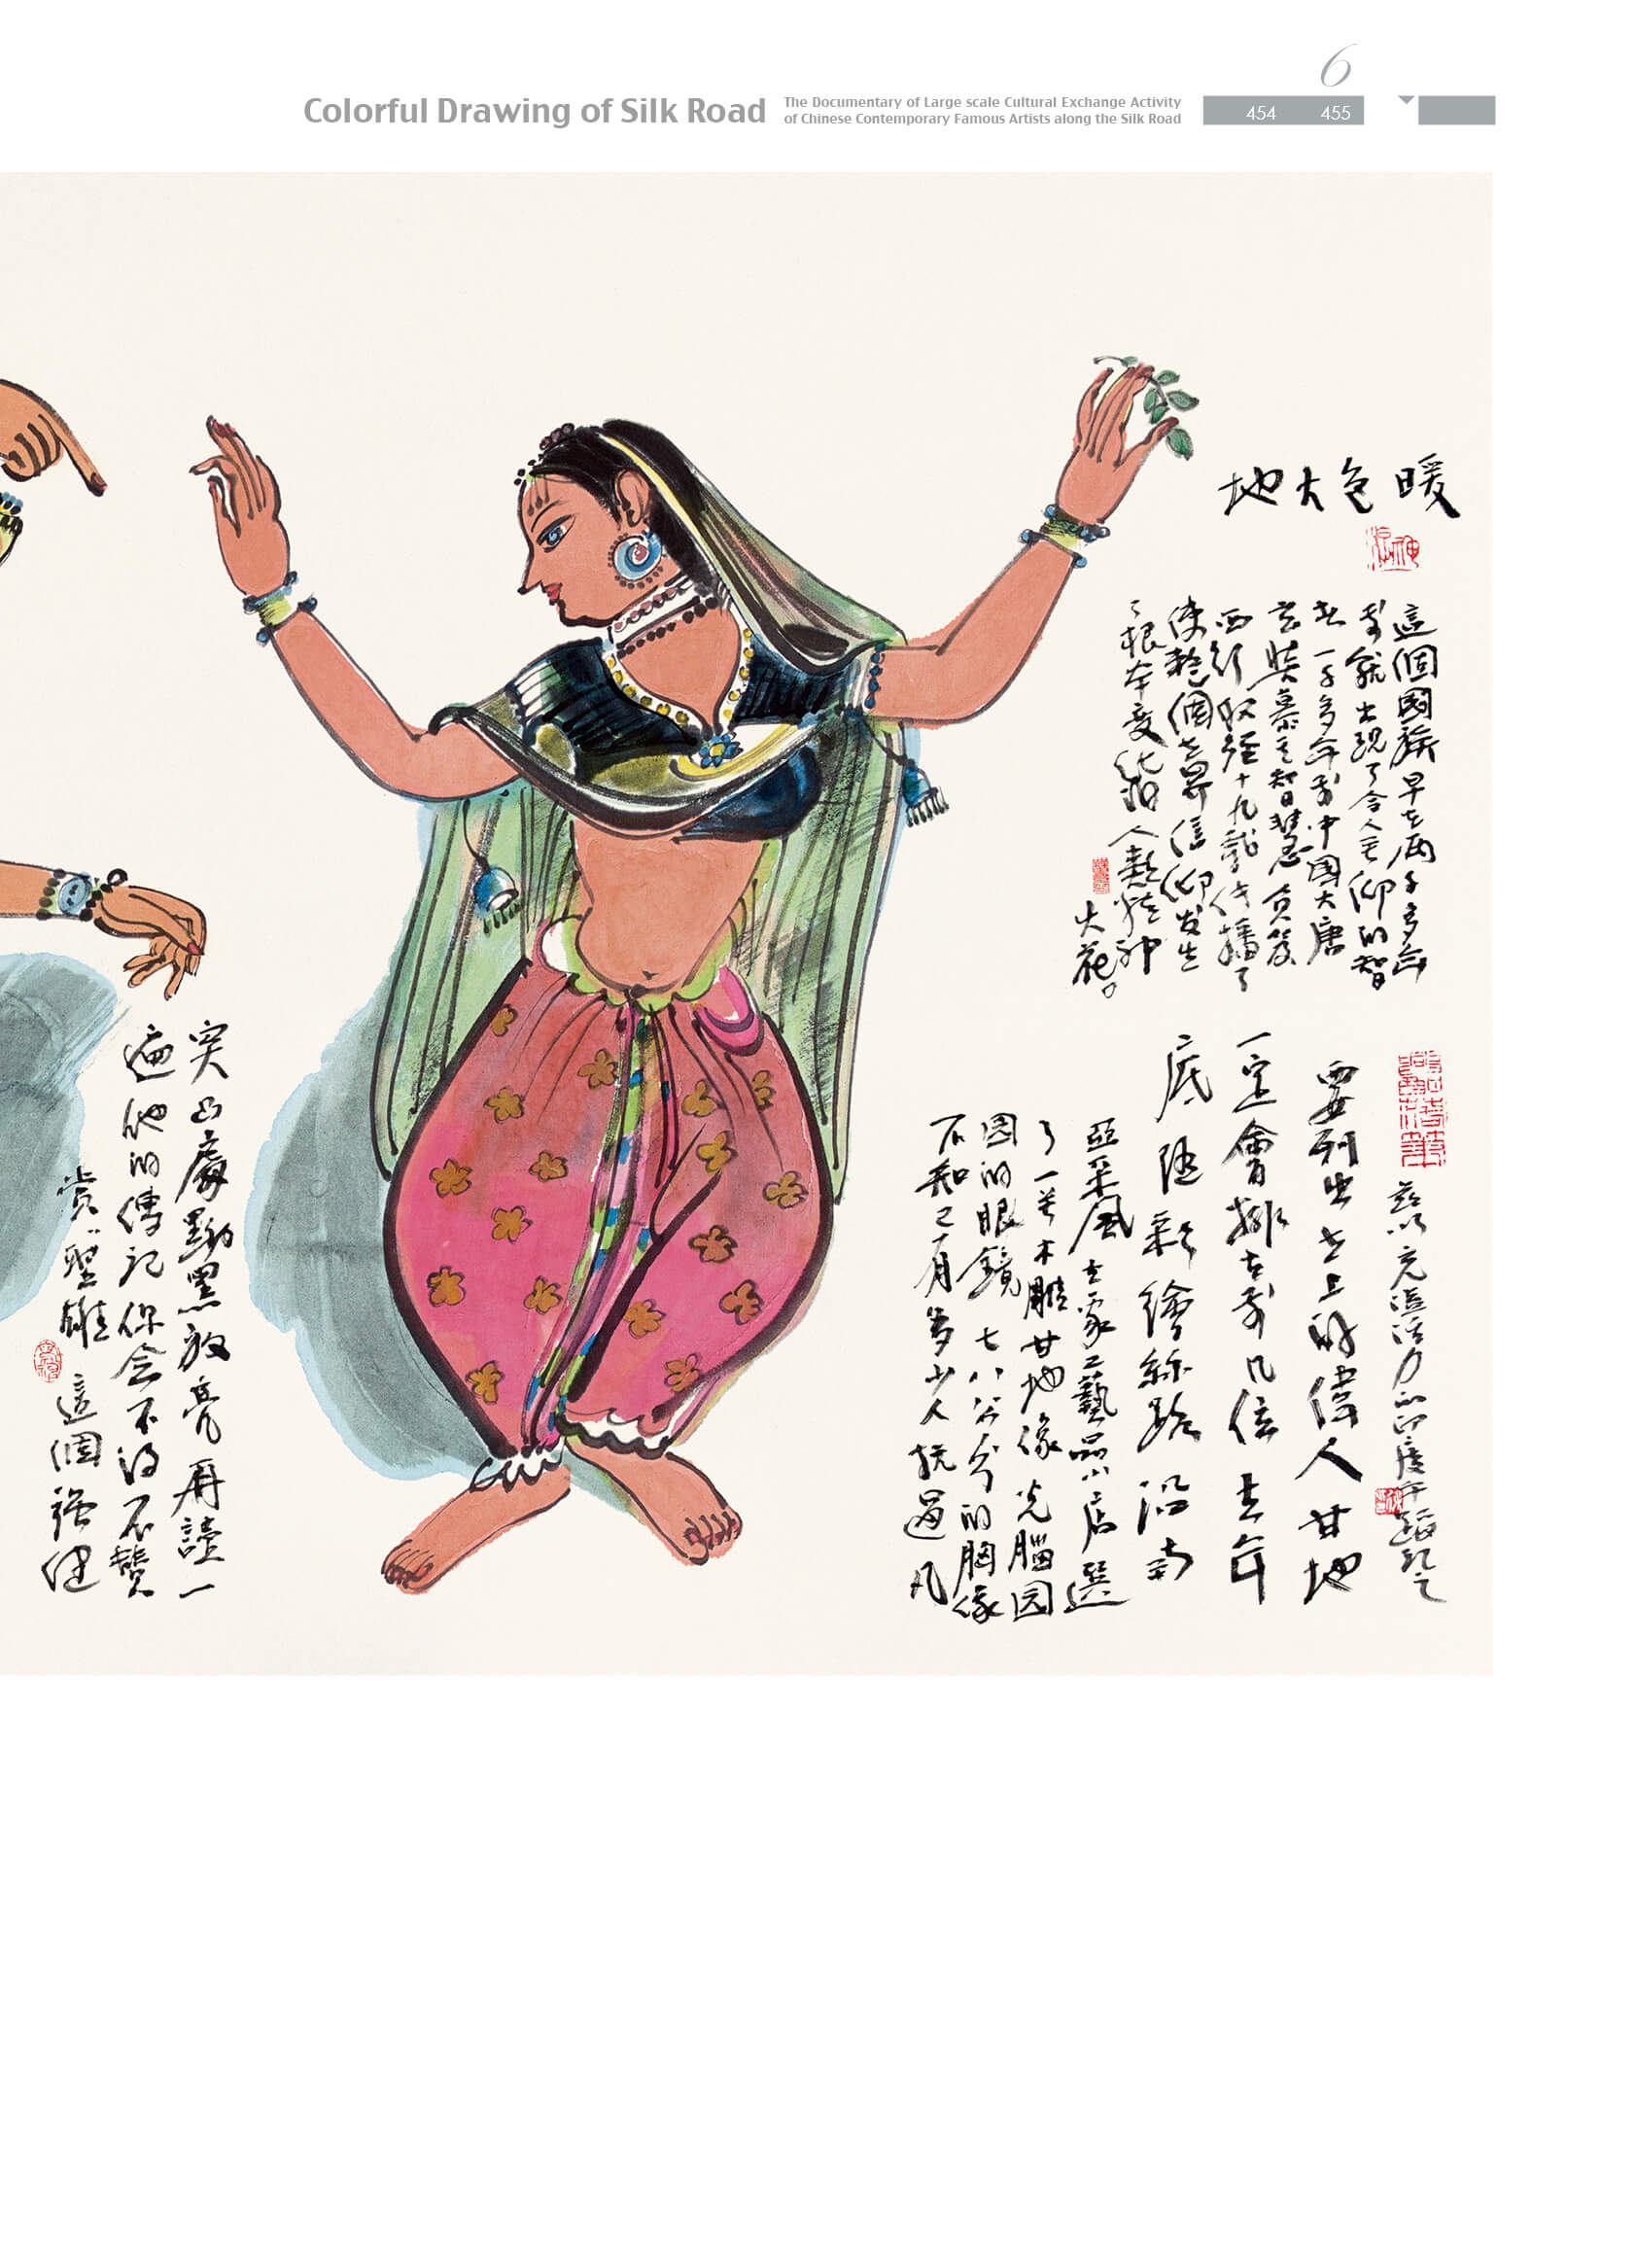 Colorful Drawing of Silk Road
The Documentary of Large scale Cultural Exchange Activity
of Chinese Contemporary Famous Artists along the Silk Road
6
454 455
暖色大地
這個國族早在兩千多年
前就出現了令人仰的智
者一千多年前中國大唐
玄奘慕之智慧負笈
西行取經十九載传播了
使整個世界信仰发生
了根本变 人類精神
火花。
充溢活力的印度
要列出世上的偉人甘地
一定會排在前几位去年
底随彩繪絲路沿南
亞采風在家工藝品小店選
了一尊木雕甘地像光腦园
圆的眼鏡七八公分的胸像
不知已有多少人抚過凡
突出處黝黑放亮再讀一
遍他的傳記你会不得不赞
赏聖雄這個強健